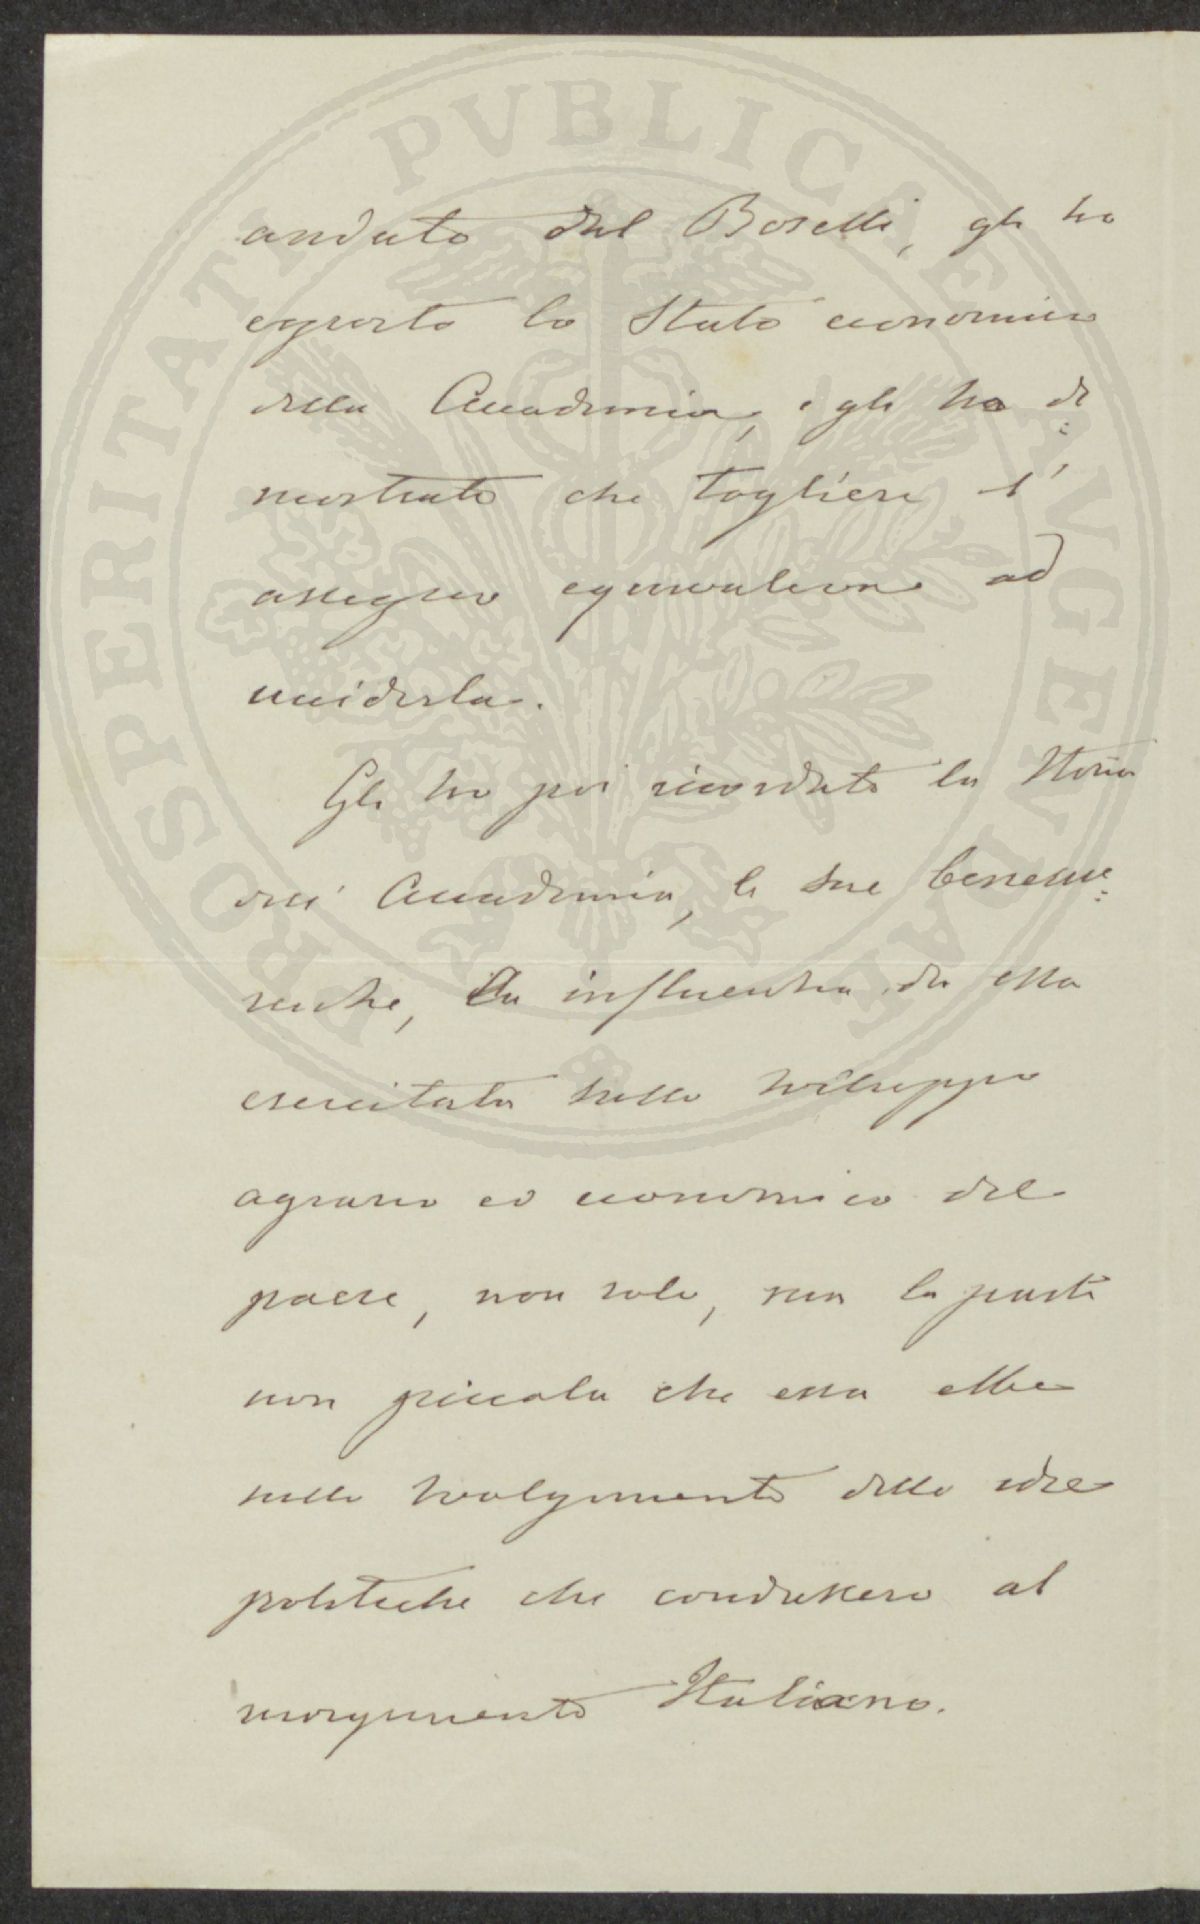 PROSPERITATI PVBLICAE AVGENDAE
andato dal Boselli, gli ho
esposto lo Stato economico
della Accademia, e gli ho di
mostrato che togliere l'
assegno equivaleva ad
ucciderla.
Gli ho poi ricordato la Storia
dell' Accademia, le sue beneme
renze, la influenza da essa
esercitata sullo sviluppo
agrario ed economico del
paese, non solo, ma la parte
non piccola che essa ebbe
nello svolgimento delle idee
politiche che condussero al
risorgimento Italiano.